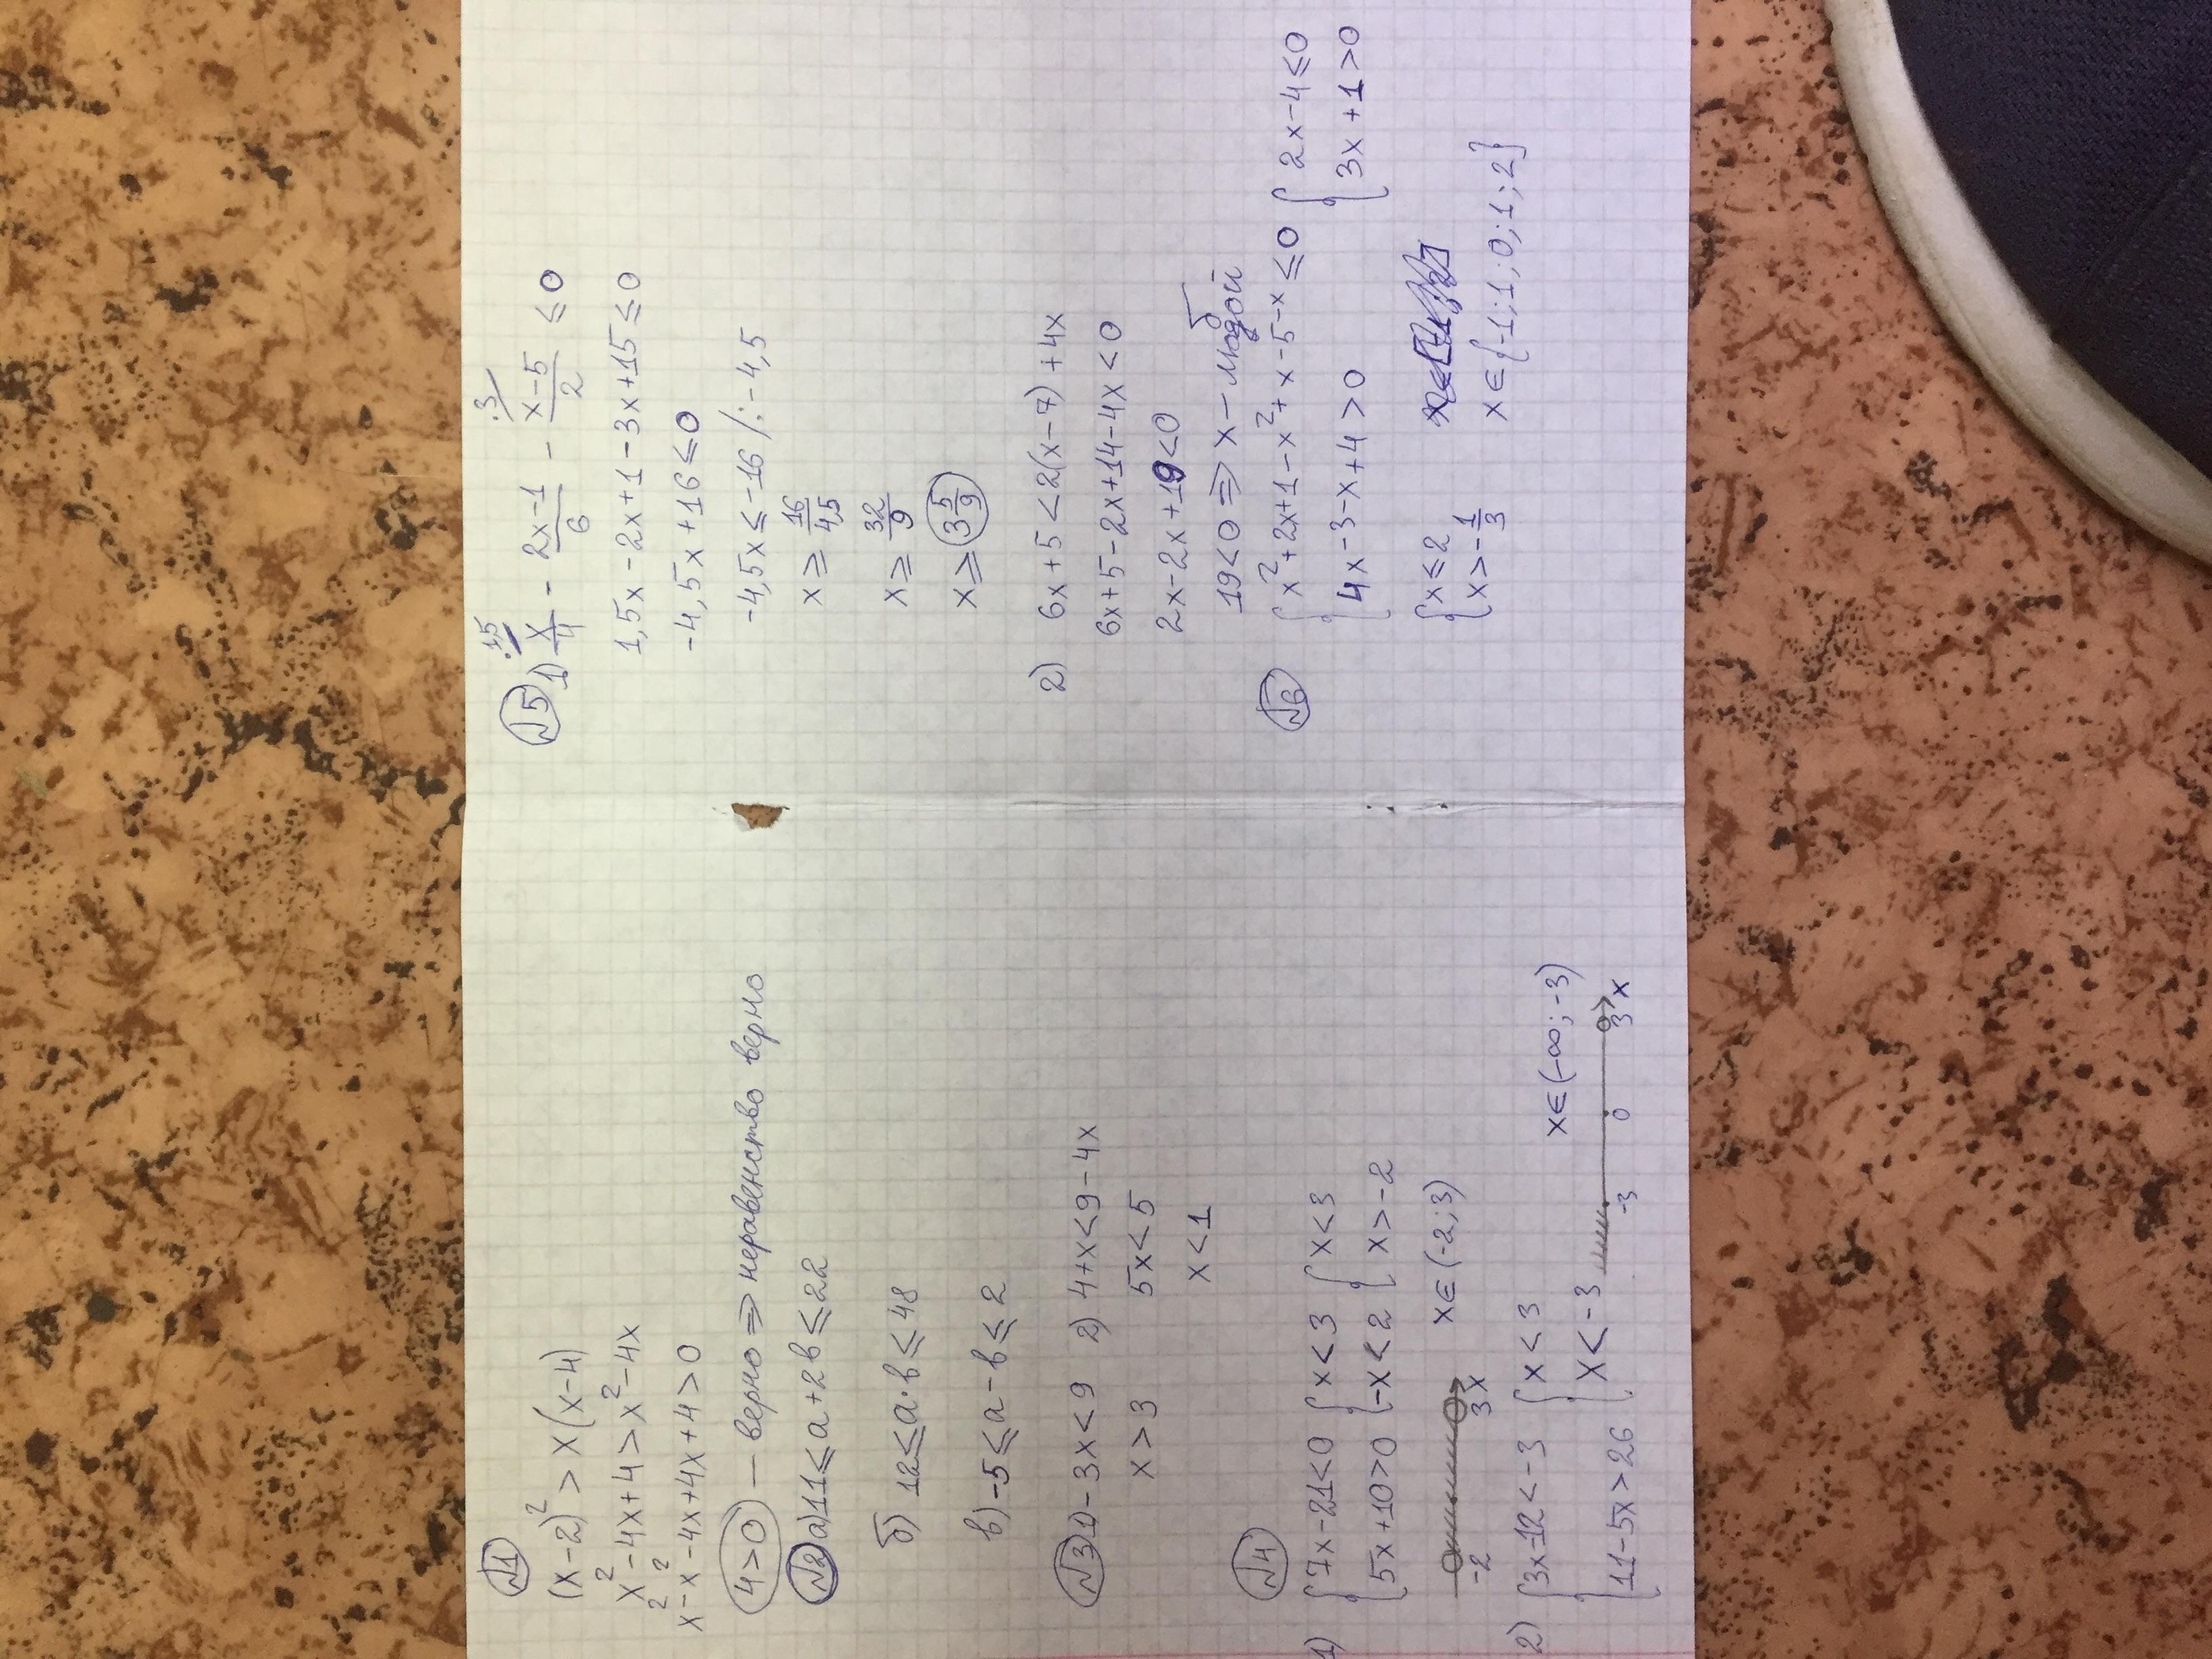 №1
(x-2)² > x(x-4)
x²-4x+4 > x²-4x
x²-x²-4x+4x+4>0
4>0 — верно ⇒ неравенство верно
№2 а) 11≤a+2b≤22
б) 12≤a·b≤48
в) -5≤a-b≤2
№3 1) -3x<9 2) 4+x<9-4x
x>3 5x<5
x<1
№4
1) {7x-21<0 {x<3 {x<3
{5x+10>0 {-x<2 {x>-2
-2 3 x x∈(-2;3)
2) {3x-12<-3 {x<3 x∈(-∞;-3)
{11-5x>26 {x<-3 -3 0 3 x
№5 1) x/4 ·1,5 - (2x-1)/6 - (x-5)/2 ·3 ≤0
1,5x-2x+1-3x+15≤0
-4,5x+16≤0
-4,5x≤-16 /:-4,5
x≥16/4,5
x≥32/9
x≥3 5/9
2) 6x+5<2(x-7)+4x
6x+5-2x+14-4x<0
2x-2x+19<0
19<0 ⇒ x - любой
№6 {x²+2x+1-x²+x-5-x≤0 {2x-4≤0
{4x-3-x+4>0 {3x+1>0
{x≤2
{x>-1/3 x∈{-1;1;0;1;2}